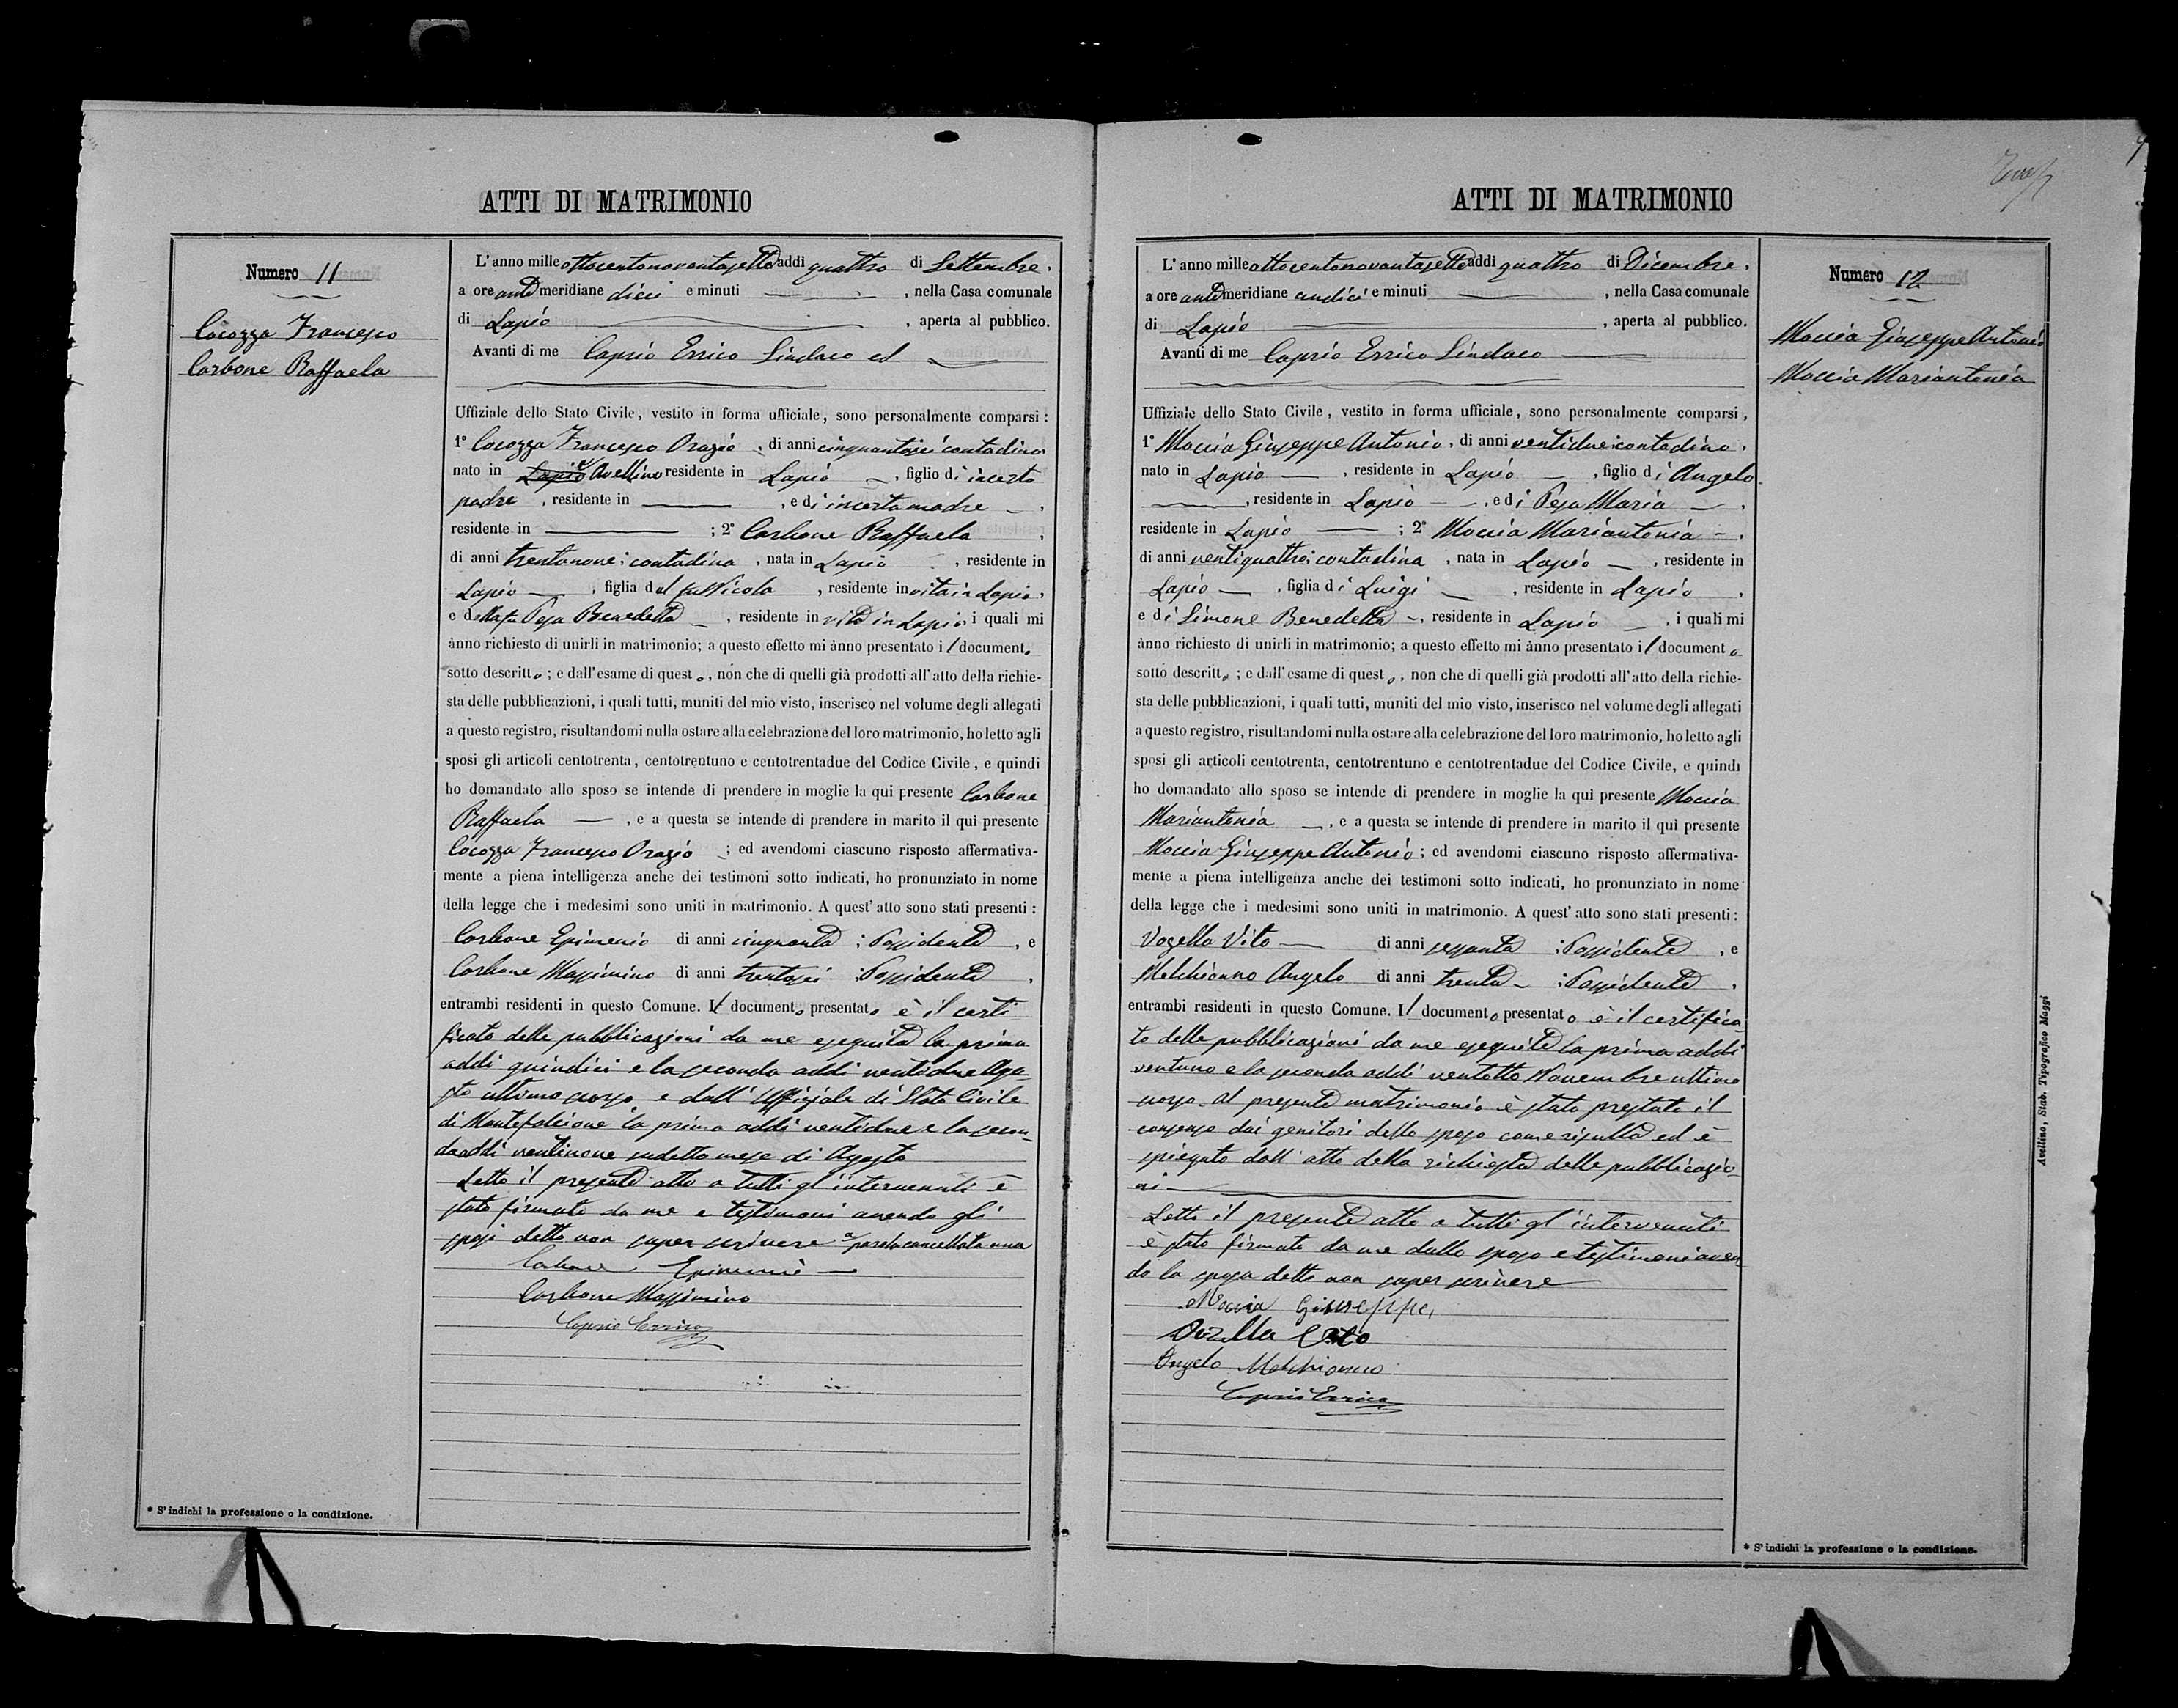 ATTI DI MATRIMONIO
Numero 11
Cocozza Francesco
Carbone Raffaela
L'anno mille ottocentonovantasette addì quattro di Settembre,
a ore anti meridiane dieci e minuti , nella Casa comunale
di Lapio , aperta al pubblico.
Avanti di me Caprio Errico Sindaco ed
Uffiziale dello Stato Civile, vestito in forma ufficiale, sono personalmente comparsi:
1° Cocozza Francesco Orazio, di anni cinquantasei contadino
nato in Lapio Avellino residente in Lapio , figlio di incerto
padre , residente in , e di incerta madre ,
residente in ; 2° Carbone Raffaela ,
di anni trentanove; contadina , nata in Lapio , residente in
Lapio , figlia del fu Nicola , residente in vita in Lapio,
e della fu Pesa Benedetta , residente in vita in Lapio, i quali mi
ànno richiesto di unirli in matrimonio; a questo effetto mi ànno presentato il documento
sotto descritto; e dall'esame di questo, non che di quelli già prodotti all'atto della richie-
sta delle pubblicazioni, i quali tutti, muniti del mio visto, inserisco nel volume degli allegati
a questo registro, risultandomi nulla ostare alla celebrazione del loro matrimonio, ho letto agli
sposi gli articoli centotrenta, centotrentuno e centotrentadue del Codice Civile, e quindi
ho domandato allo sposo se intende di prendere in moglie la qui presente Carbone
Raffaela , e a questa se intende di prendere in marito il qui presente
Cocozza Francesco Orazio ; ed avendomi ciascuno risposto affermativa-
mente a piena intelligenza anche dei testimoni sotto indicati, ho pronunziato in nome
della legge che i medesimi sono uniti in matrimonio. A quest'atto sono stati presenti:
Carbone Epimenio di anni cinquanta ; Possidente , e
Carbone Massimino di anni trentasei ; Possidente ,
entrambi residenti in questo Comune. Il documento presentato è il certi
ficato delle pubblicazioni da me eseguite la prima
addì quindici e la seconda addì ventidue Ago-
sto ultimo scorso e dall'Uffiziale di Stato Civile
di Montefalcione la prima addì ventidue e la secon-
da addì ventinove sudetto mese di Agosto
Letto il presente atto a tutti gl'intervenuti è
stato firmato da me e testimoni avendo gli
sposi detto non saper scrivere parola cancellata una
Carbone Epimenio
Carbone Massimino
Caprio Errico
* S'indichi la professione o la condizione.
ATTI DI MATRIMONIO
Numero 12
Moccia Giuseppe Antonio
Moccia Mariantonia
L'anno mille ottocentonovantasette addì quattro di Dicembre,
a ore anti meridiane undici e minuti , nella Casa comunale
di Lapio , aperta al pubblico.
Avanti di me Caprio Errico Sindaco
Uffiziale dello Stato Civile, vestito in forma ufficiale, sono personalmente comparsi,
1° Moccia Giuseppe Antonio, di anni ventidue; contadino,
nato in Lapio , residente in Lapio , figlio di Angelo
, residente in Lapio , e di Pesa Maria ,
residente in Lapio ; 2° Moccia Mariantonia ,
di anni ventiquattro; contadina , nata in Lapio , residente in
Lapio , figlia di Luigi , residente in Lapio ,
e di Simone Benedetta , residente in Lapio , i quali mi
ànno richiesto di unirli in matrimonio; a questo effetto mi ànno presentato il documento
sotto descritto; e dall'esame di questo, non che di quelli già prodotti all'atto della richie-
sta delle pubblicazioni, i quali tutti, muniti del mio visto, inserisco nel volume degli allegati
a questo registro, risultandomi nulla ostare alla celebrazione del loro matrimonio, ho letto agli
sposi gli articoli centotrenta, centotrentuno e centotrentadue del Codice Civile, e quindi
ho domandato allo sposo se intende di prendere in moglie la qui presente Moccia
Mariantonia , e a questa se intende di prendere in marito il qui presente
Moccia Giuseppe Antonio; ed avendomi ciascuno risposto affermativa-
mente a piena intelligenza anche dei testimoni sotto indicati, ho pronunziato in nome
della legge che i medesimi sono uniti in matrimonio. A quest'atto sono stati presenti:
Vozella Vito di anni sessanta ; Possidente , e
Melchionno Angelo di anni trenta ; Possidente ,
entrambi residenti in questo Comune. Il documento presentato è il certifica
to delle pubblicazioni da me eseguite la prima addì
ventuno e la seconda addì ventotto Novembre ultimo
scorso. Al presente matrimonio è stato prestato il
consenso dai genitori dello sposo come risulta ed è
spiegato dall'atto della richiesta delle pubblicazio
ni
Letto il presente atto a tutti gl'intervenuti
è stato firmato da me dallo sposo e testimoni aven
do la sposa detto non saper scrivere
Moccia Giuseppe
Vozella Vito
Angelo Melchionno
Caprio Errico
Avellino, Stab. Tipografico Maggi
* S'indichi la professione o la condizione.